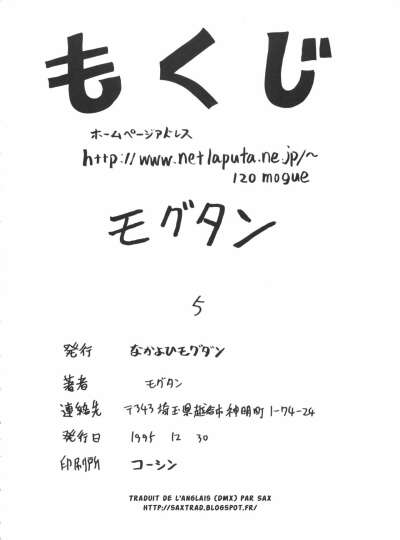 もくじ
ホームページアドレス
http://www.netlaputa.ne.jp/~
120 mogue
モグタン
5
発行 なかよひモグダン
著者 モグタン
連絡先 〒343 埼玉県越谷市神明町 1-74-24
発行日 1995 12 30
印刷所 コーシン
TRADUIT DE L'ANGLAIS (DMX) PAR SAX
HTTP://SAXTRAD.BLOGSPOT.FR/